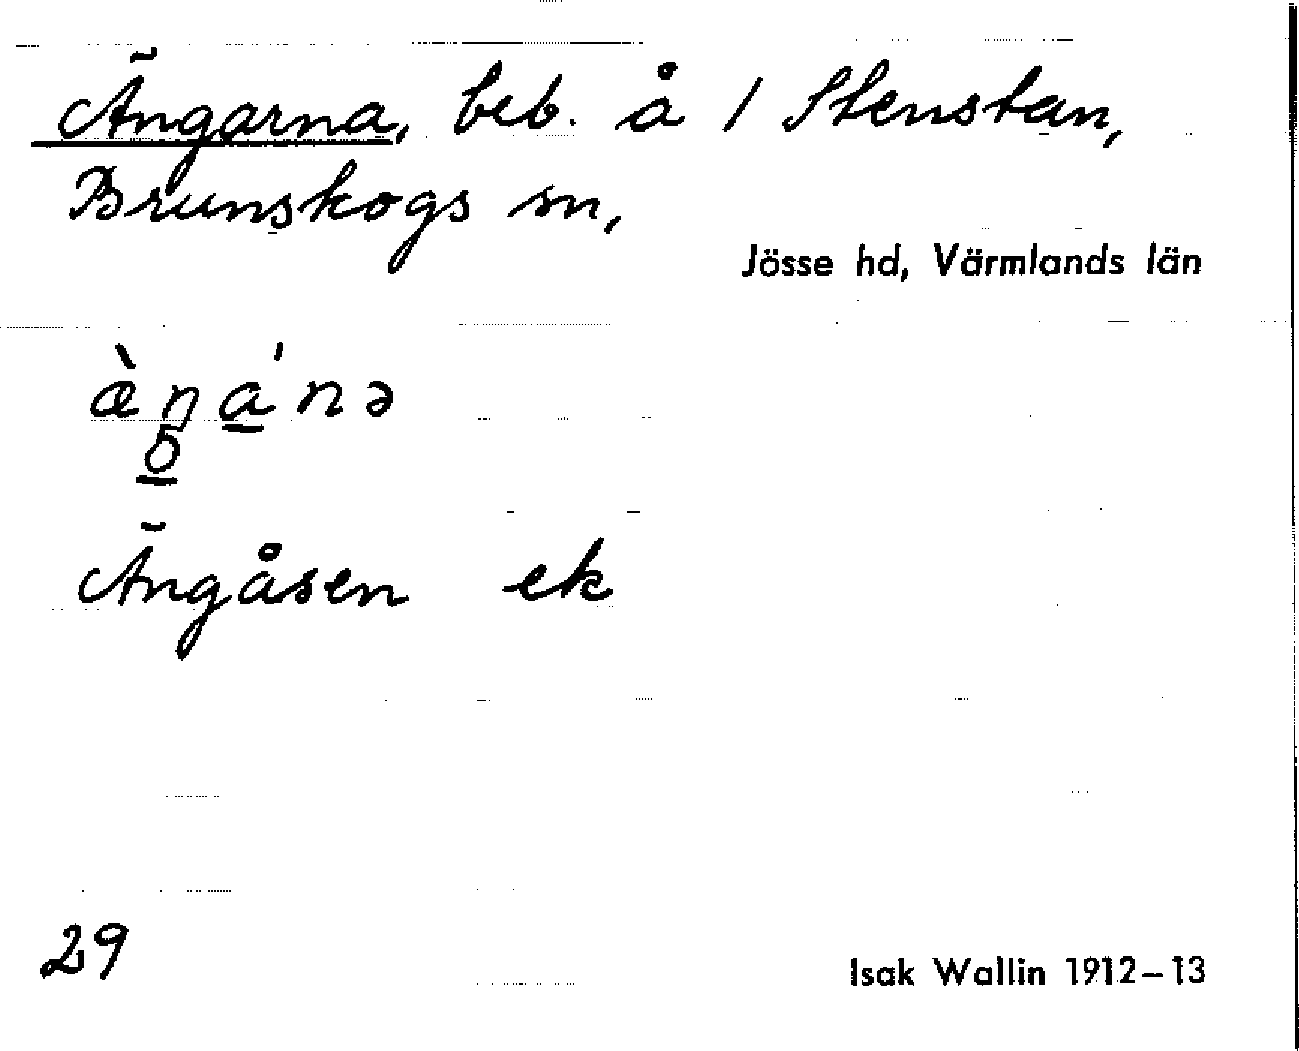 Ängarna, beb. å 1 Stenstan,
Brunskogs sn,
Jösse hd, Värmlands län
æ̀ŋá̲nə
5
Ängåsen ek
29
Isak Wallin 1912–13